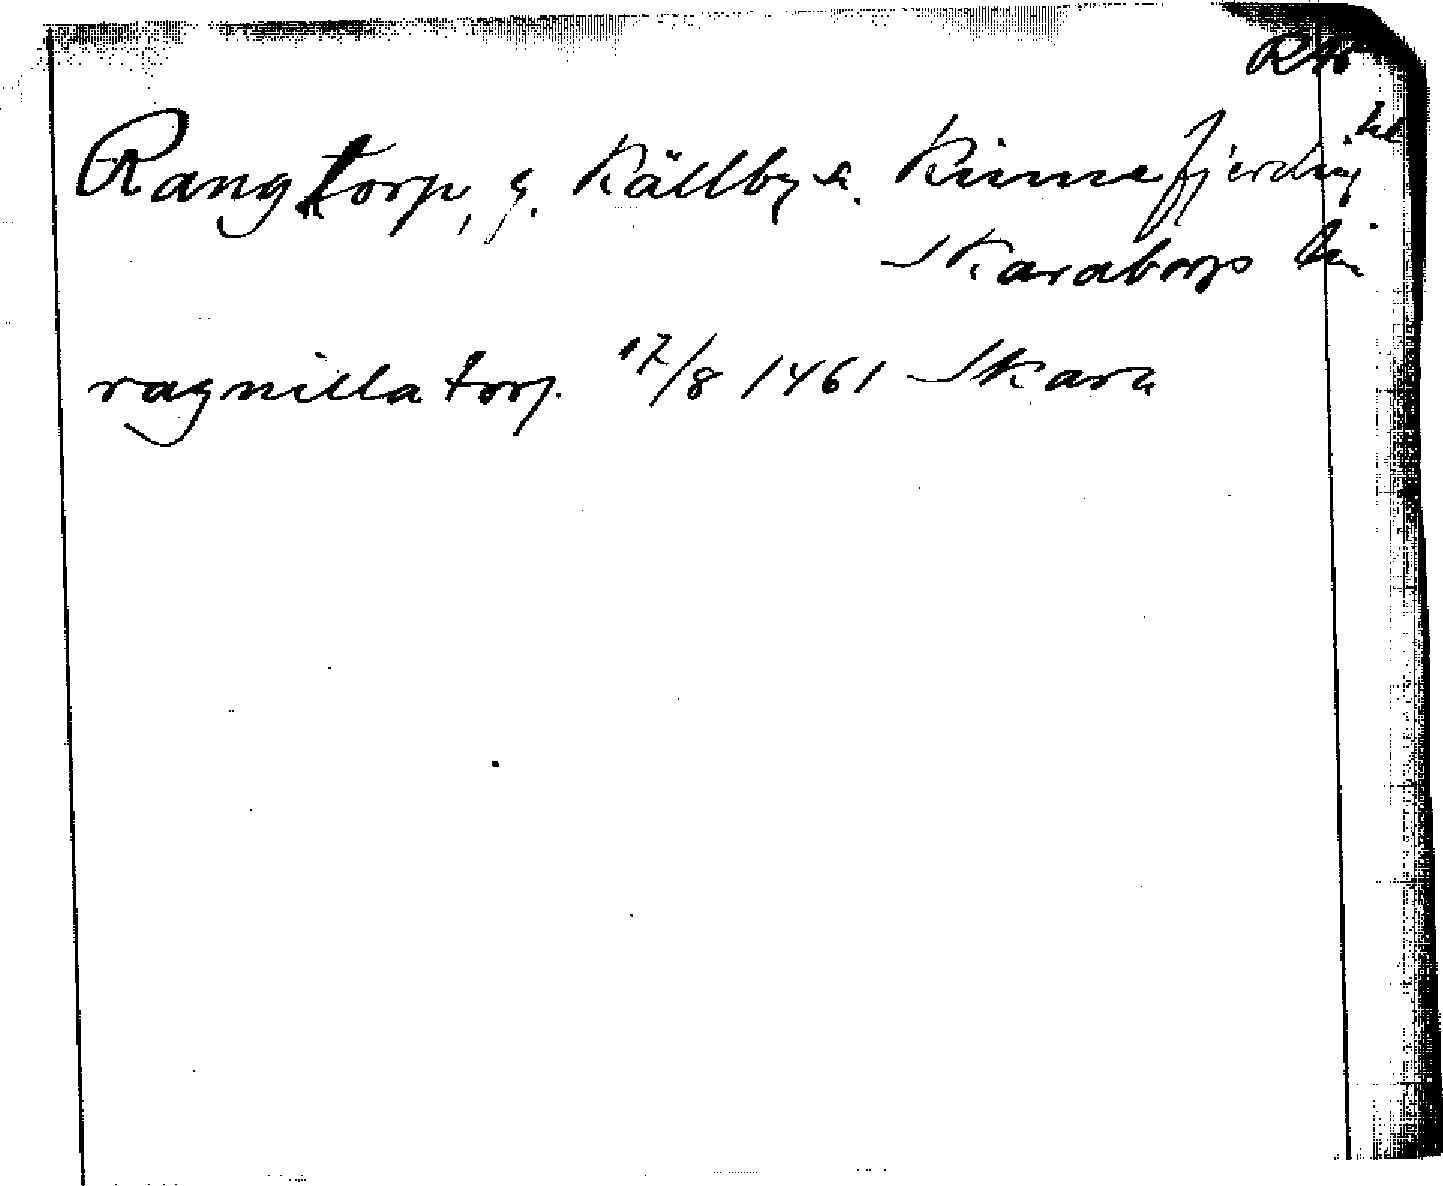 Rangtorp, g. Källby s. Kinnefjerding hd
Skaraborgs län
ragnilla torp. 17/8 1461 Skara